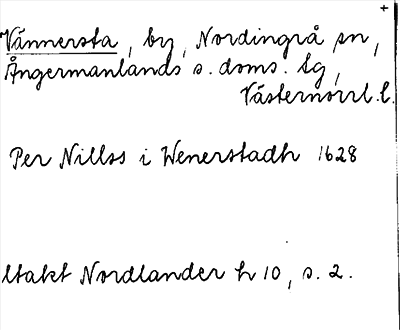 +
Vännersta, by, Nordingrå sn,
Ångermanlands s. doms. tg,
Västernorrl. l.
Per Nillss i Wenerstadh 1628
Utakt Nordlander h 10, s. 2.